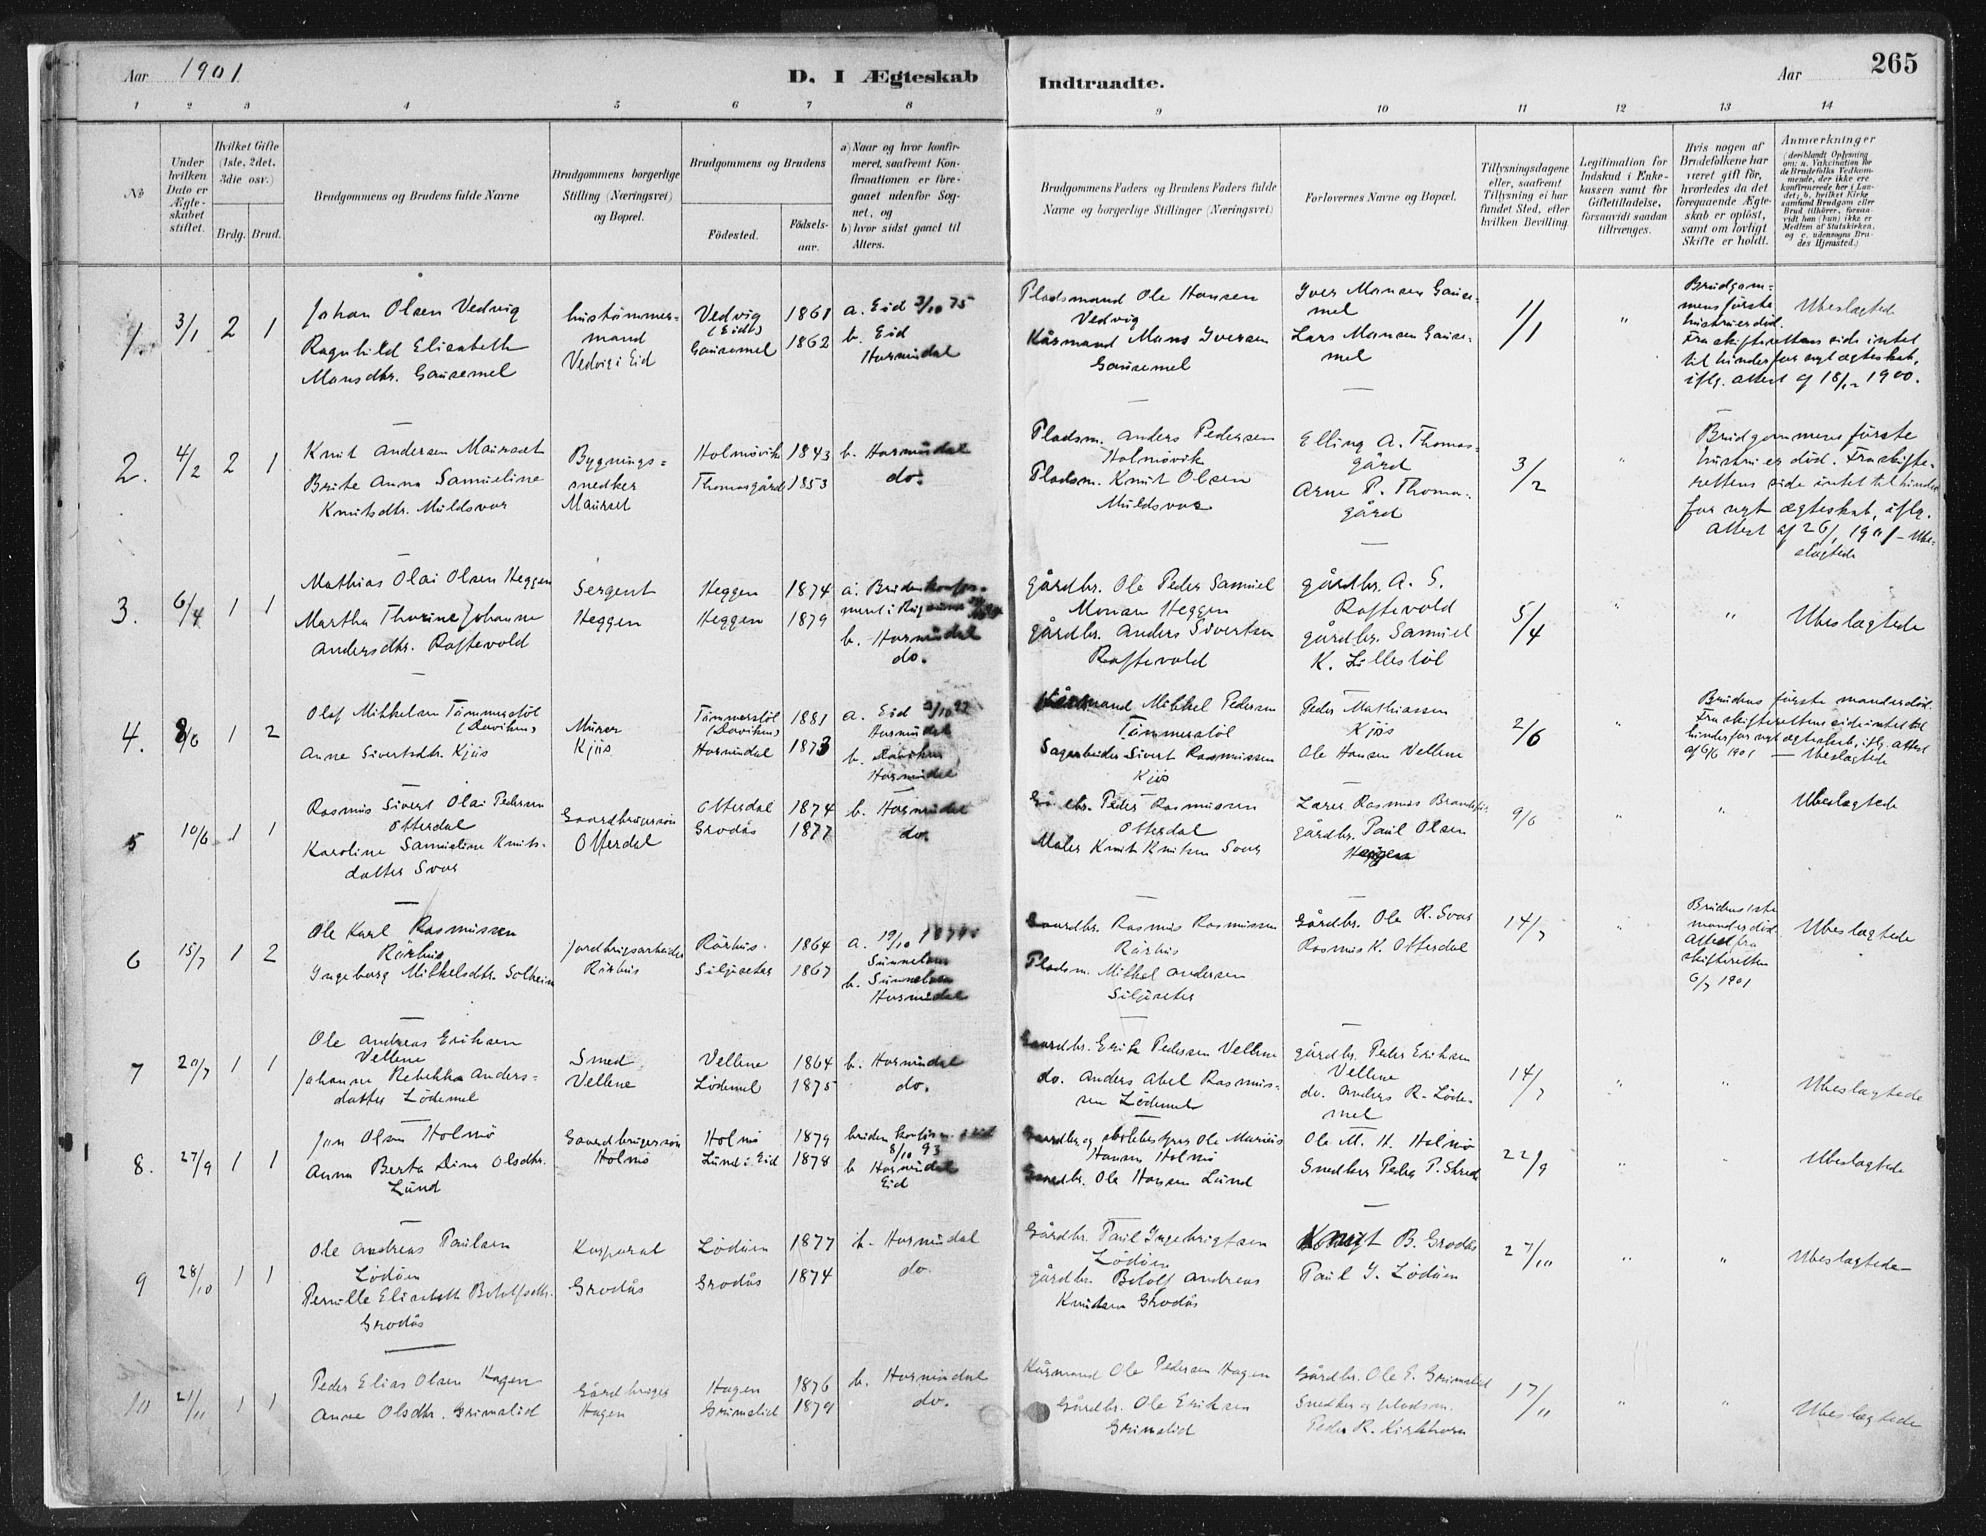 Aar 1901
D. I Ægteskab
Indtraadte.
Aar
265
1 2 3 4 5 6 7 8 9 10 11 12 13 14
No
Under hvilken Dato er Ægteskabet stiftet.
Hvilket Gifte (1ste, 2det, 3die osv.)
Brdg. Brud.
Brudgommens og Brudens fulde Navne
Brudgommens borgerlige Stilling (Næringsvei) og Bopæl.
Brudgommens og Brudens
Fødested.
Fødselsaar.
a) Naar og hvor konfirmeret, saafremt Konfirmationen er foregaaet udenfor Sognet, og
b) hvor sidst gaaet til Alters.
Brudgommens Faders og Brudens Faders fulde Navne og borgerlige Stillinger (Næringsvei)
Forlovernes Navne og Bopæl.
Tillysningsdagene eller, saafremt Tillysning ei har fundet Sted, efter hvilken Bevilling.
Legitimation for Indskud i Enkekassen samt for Giftetilladelse, forsaavidt saadan tiltrænges.
Hvis nogen af Brudefolkene har været gift før, hvorledes da det foregaaende Ægteskab er opløst, samt om lovligt Skifte er holdt.
Anmerkninger
1. 3/1 2 1
Johan Olsen Vedvig
Ragnhild Elisabeth
Mansdtr. Gausemel
hustømmermand
Vedvig i Eid
Vedvig (Eid) 1861
Gausemel 1862
a. Eid 3/10 75
b. Eid
Hornindal
Pladsmand Ole Hansen
Vedvig
Kårmand Mons Iversen
Gausemel
Iver Monsen Gausemel
Lars Monsen Gausemel
1/1
"
Brudgommens første
hustru er død.
Fra skifterettens side intet
til hinder for nyt ægteskab,
iflg. attest af 18/12 1900.
Ubeslægtede
2. 4/2 2 1
Knut Andersen Maurset
Brite Anna Samueline
Knutsdtr. Muldsvor
Bygningssnedker
Maurset
Holmøvik 1843
Thomasgård 1853
b. Hornindal
do.
Pladsm. Anders Pedersen
Holmøvik
Pladsm. Knut Olsen
Muldsvor
Elling A. Thomasgård
Arne P. Thomasgård
3/2
"
Brudgommens første
hustru er død. Fra skifterettens side intet til hinder
for nyt ægteskab, iflg.
attest af 26/1 1901 - Ubeslægtede
3. 6/4 1 1
Mathias Olai Olsen Heggen
Martha Thorine Johanne
Andersdtr. Raftevold
Sergent
Heggen
Heggen 1874
Heggen 1879
b. Hornindal
do.
gårdbr. Ole Peder Samuel
Monsen Heggen
gårdbr. Anders Sivertsen
Raftevold
gårdbr. A. S.
Raftevold
gårdbr. Samuel
K. Lillestøl
5/4
"
"
Ubeslægtede
4. 8/6 1 2
Olaf Mikkelsen Tømmerstøl
(Daviken)
Anne Sivertsdtr. Kjøs
Murer
Kjøs
Tømmerstøl (Daviken) 1881
Hornindal 1873
a. Eid
Hornindal
b. Daviken
Hornindal
Kårmand Mikkel Pedersen
Tømmerstøl
Sagarbeider Sivert Rasmussen
Kjøs
Peder Mathiassen
Kjøs
Ole Hansen Vellene
2/6
"
Brudens første mand er død.
Fra skifterettens side intet til
hinder for nyt ægteskab, iflg. attest
af 6/6 1901 - Ubeslægtede
5 10/6 1 1
Rasmus Sivert Olai Pedersen
Otterdal
Karoline Samueline Knutsdatter Svor
Gaardbrugersøn
Otterdal
Otterdal 1874
Grodås 1877
b. Hornindal
do.
Peder Rasmussen
Otterdal
Maler Knut Knutsen Svor
Lærer Rasmus
gårdbr. Paul Olsen
Haugen
9/6
"
"
Ubeslægtede
6 15/7 1 2
Ole Karl Rasmussen
Rørhus
Ingeborg Mikkelsdtr. Solheim
Jordbrugsarbeider
Rørhus
Rørhus 1864
Siljeseter 1867
a. 19/10
Sunnelven
b. Sunnelven
Hornindal
Gaardbr. Rasmus Rasmussen
Rørhus
Pladsm. Mikkel Andersen
Siljeseter
Gårdbr. Ole R. Svor
Rasmus K. Otterdal
14/7
"
Brudens 1ste
mand er død.
Attest fra
skifteretten
6/7 1901
Ubeslægtede
7 20/7 1 1
Ole Andreas Eriksen
Vellene
Johanne Rebekka Andersdatter Lødemel
Smed
Vellene
Vellene 1864
Lødemel 1875
b. Hornindal
do.
Gaardbr. Erik Pedersen Vellene
do. Anders Abel Rasmussen Lødemel
gårdbr. Peder Eriksen
Vellene
do. Anders R. Lødemel
14/7
"
"
Ubeslægtede
8. 27/9 1 1
Jon Olsen Holmø
Anna Berta Dina Olsdtr.
Lund
Gaardbrugersøn
Holmø
Holmø 1879
Lund i Eid 1878
8/10 93
b Hornindal
Eid
Gaardbr. og Ole Marius
Hansen Holmø
Gaardbr. Ole Hansen Lund
Ole M. H. Holmø
Snedker Peder P. Skrede
22/9
"
"
Ubeslægtede
9 28/10 1 1
Ole Andreas Paulsen
Lødøen
Pernille Elisabeth Botolfsdtr.
Grodås
Korporal
Grodås
Lødøen 1877
Grodås 1874
b. Hornindal
do.
Gårdbr. Paul Ingebrigtsen
Lødøen
gårdbr. Botolf Andreas
Knudsen Grodås
Knut B. Grodås
Paul I. Lødøen
27/10
"
"
Ubeslægtede
10 21/11 1 1
Peder Elias Olsen Hagen
Anne Olsdtr. Grimslid
Gårdbruger
Hagen
Hagen 1876
Grimslid 1879
b. Hornindal
do.
Kårmand Ole Pedersen Hagen
Gårdbr. Ole Eriksen
Grimslid
Gårdbr. Ole E. Grimslid
Snedker og pladsm.
Peder R. Kirkhorn
17/11
"
"
Ubeslægtede